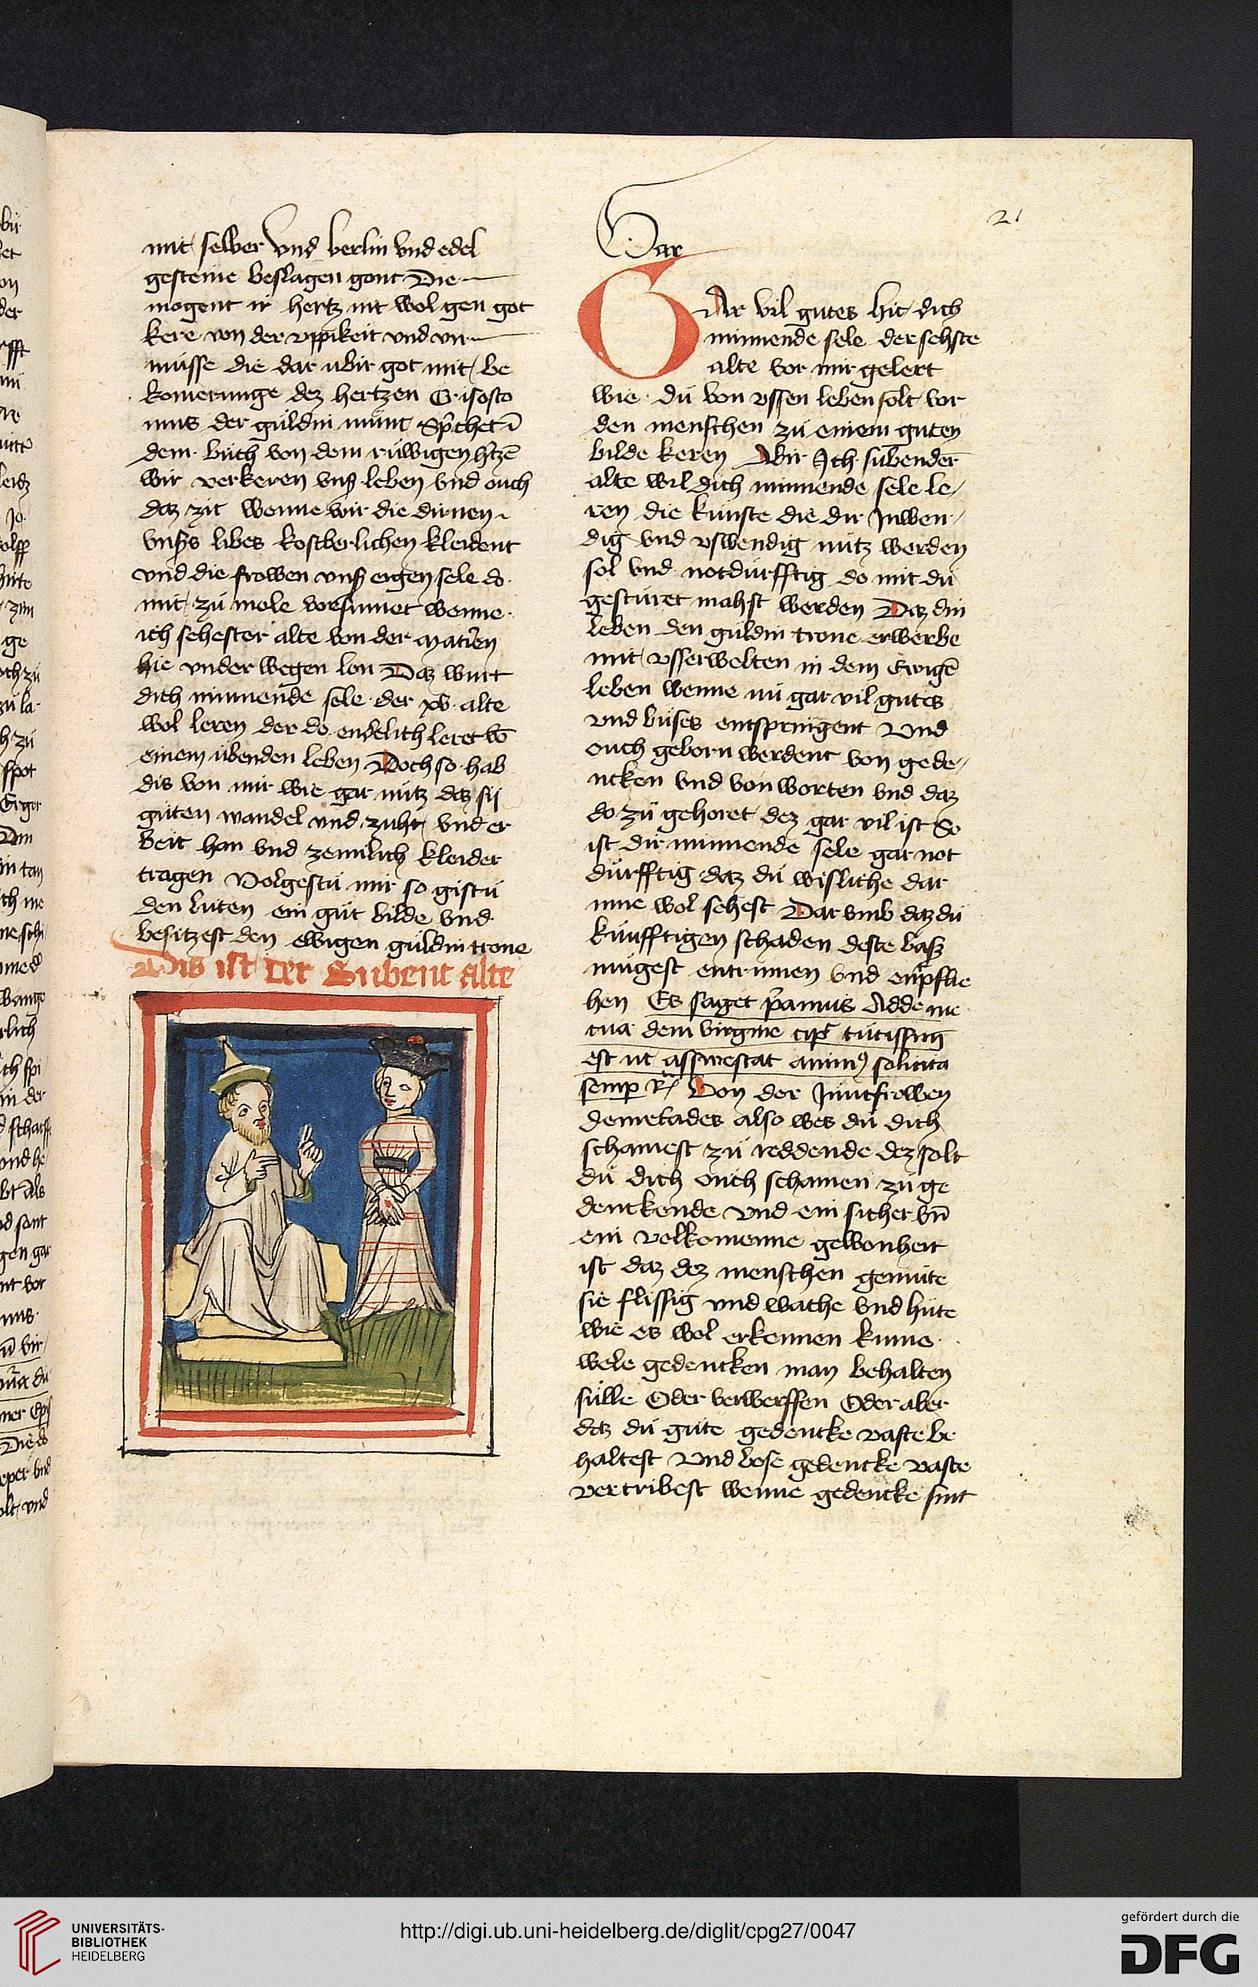 21
mit selber vnd berlin vnd edel
gesteine beslagen gont Die
mogent ir hertz nit wol gen got
kere von der vppikeit vnd vn
musse die dar vbir got mit be
komerunge dez hertzen
der guldin munt
dem buch von dem ruwigen
wir verkeren leben vnd ouch
daz zit wenne wir die dirnen
libes kostberlichen kleident
vnd die frowen eigen sele do
mit zu mole vorsumet wenne
ich sehester alte von der
hie vnder wegen lon Daz wurt
dich minnende sele der xv alte
wol leren der do endelich leret vō
einem übenden leben Doch so hab
dis von mir wie gar nutz daz sij
guten wandel vnd zuht vnd er
beit han vnd zemlich kleider
tragen Volgestu mir so gistu
den luten ein gut bilde vnd
besitzest den ewigen guldin trone
Dis ist der Subent alte
Gar
GAr vil gutes hit dich
minnende sele der sehste
alte vor mir gelert
wie du von vssen leben solt vor
den menschen zu einem guten
bilde keren Abir Ich subender
alte wil dich minnende sele le/
ren die kunste die dir Inwen/
dig vnd vswendig nutz werden
sol vnd notdurfftig do mit du
gesturet mahst werden Daz din
leben den guldin trone erwerbe
mit vsserwelten in dem Ewigē
leben wenne nu gar vil gutes
vnd buses entspringent Vnd
ouch geborn werdent von gede//
ncken vnd von worten vnd daz
do zu gehoret dez gar vil ist So
ist dir minnende sele gar not
durfftig daz du wisliche dar
inne wol sehest Dar vmb daz du
kunfftigen schaden deste basz
mugest entrinnen vnd enpflie
hen Es saget
dem virgine tutissim
est ut assuescat solicita
Von der Juncfrowen
demetades also wes du dich
schamest zu reddende dez solt
du dich ouch schamen zu ge
denckende vnd ein sicher vn̄
ein volkomenne gewonheit
ist daz dez menschen gemute
sie flissig vnd wache vnd hute
wie es wol erkennen kunne
wele gedencken man behalten
sulle Oder verwerffen Oder aber
daz du gute gedencke vaste be
haltest Vnd bose gedencke vaste
vertribest wenne gedencke sint
UNIVERSITÄTS-
BIBLIOTHEK
HEIDELBERG
http://digi.ub.uni-heidelberg.de/diglit/cpg27/0047
gefördert durch die
DFG